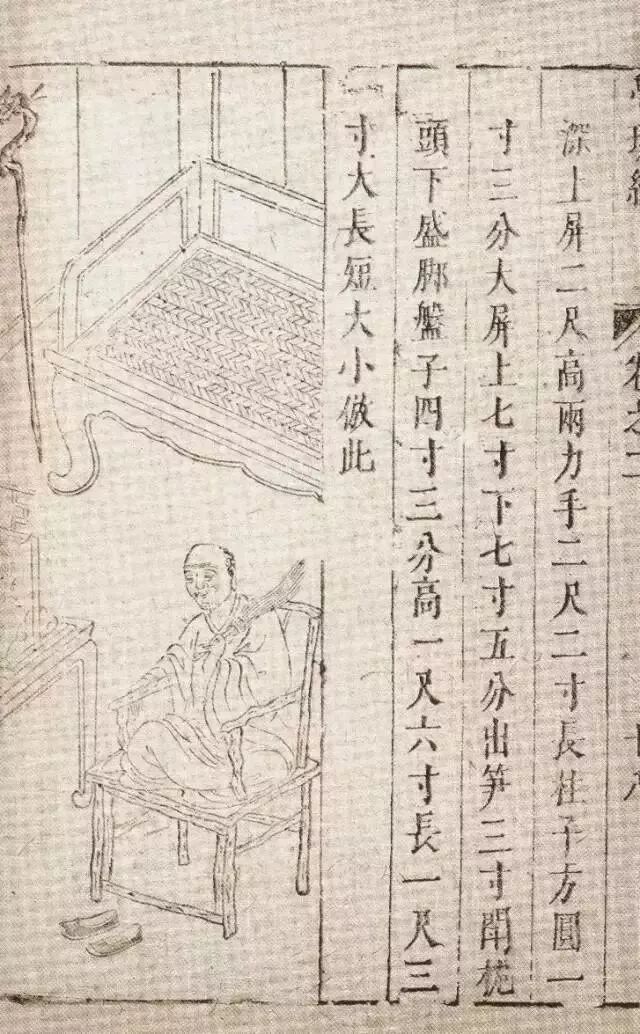 深上屏二尺高兩力手二尺二寸長柱子方圓一
寸三分大屏上七寸下七寸五分出笋三寸閗枕
頭下盛脚盤子四寸三分高一尺六寸長一尺三
寸大長短大小倣此